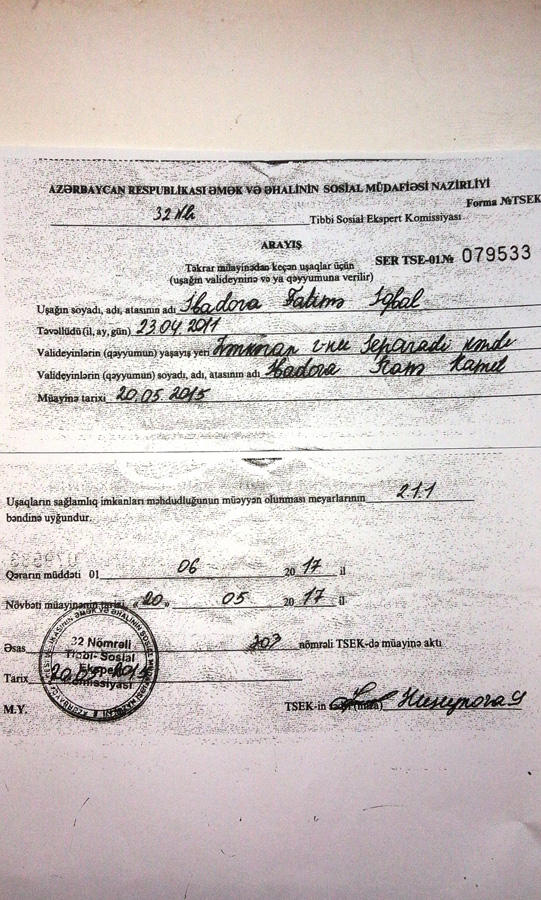 AZƏRBAYCAN RESPUBLİKASI ƏMƏK VƏ ƏHALİNİN SOSİAL MÜDAFİƏSİ NAZİRLİYİ
Forma №TSEK
32 Tibbi Sosial Ekspert Komissiyası
ARAYIŞ
Təkrar müayinədən keçən uşaqlar üçün SER TSE-01.№ 079533
(uşağın valideyninə və ya qəyyumuna verilir)
Uşağın soyadı, adı, atasının adı İbadova Fatimə İqbal
Təvəllüdü (il, ay, gün) 23.04.2011
Valideyinlərin (qəyyumun) yaşayış yeri
Valideyinlərin (qəyyumun) soyadı, adı, atasının adı İbadova Kamil
Müayinə tarixi 20.05.2015
Uşaqların sağlamlıq imkanları məhdudluğunun müəyyən olunması meyarlarının 2.1.1
bəndinə uyğundur.
079533
Qərarın müddəti 01 06 2017 il
Növbəti müayinənin tarixi «20» 05 2017 il
Əsas 203 nömrəli TSEK-də müayinə aktı
32 Nömrəli
Tibbi- Sosial
Ekspert
Komissiyası
Tarix
M.Y. TSEK-in